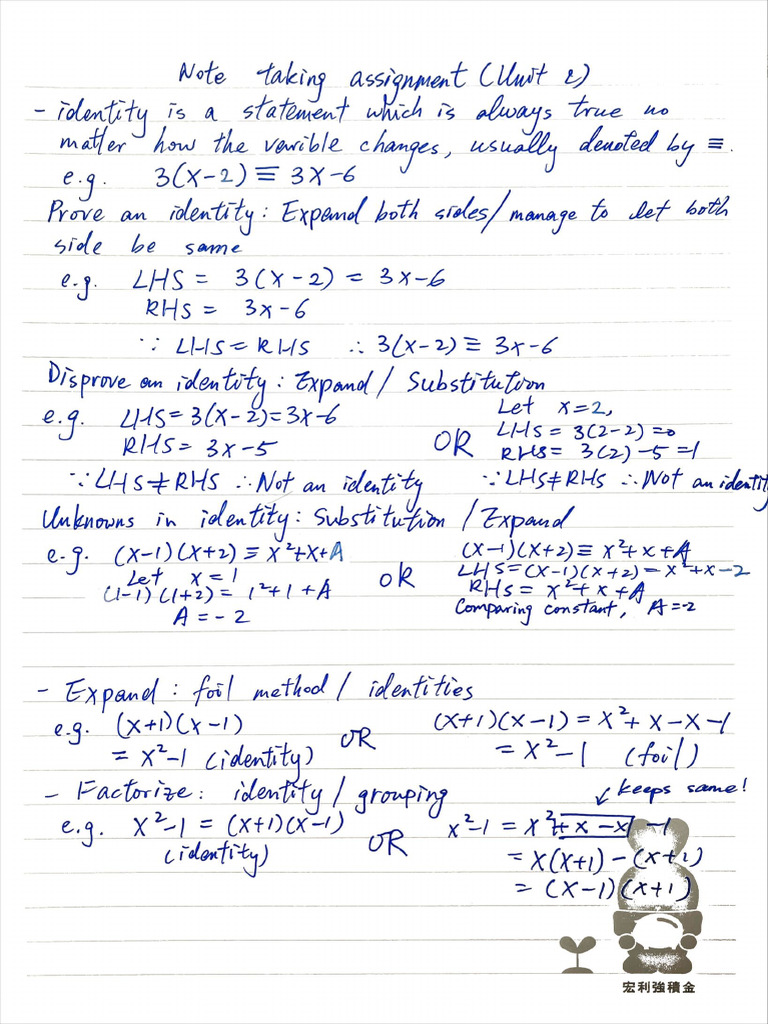 Note taking assignment (Unit 2)
- identity is a statement which is always true no
matter how the varible changes, usually denoted by ≡.
e.g. 3(x-2) ≡ 3x-6
Prove an identity: Expand both sides/manage to let both
side be same
e.g. LHS = 3(x-2) = 3x-6
RHS = 3x-6
∵ LHS = RHS ∴ 3(x-2) ≡ 3x-6
Disprove an identity: Expand / Substitution
e.g. LHS = 3(x-2) = 3x-6
RHS = 3x-5
∵ LHS ≠ RHS ∴ Not an identity
OR
Let x=2,
LHS = 3(2-2) = 0
RHS = 3(2) -5 = 1
∵ LHS ≠ RHS ∴ Not an identity
Unknowns in identity: Substitution / Expand
e.g. (x-1)(x+2) ≡ x²+x+A
Let x=1
(1-1)(1+2) = 1²+1+A
A = -2
OR
(x-1)(x+2) ≡ x²+x+A
LHS = (x-1)(x+2) = x²+x-2
RHS = x²+x+A
Comparing constant, A=-2
- Expand: foil method / identities
e.g. (x+1)(x-1)
= x²-1 (identity)
OR
(x+1)(x-1) = x²+x-x-1
= x²-1 (foil)
- Factorize: identity / grouping
e.g. x²-1 = (x+1)(x-1)
(identity)
OR
keeps same!
x²-1 = x²+x-x-1
= x(x+1) - (x+1)
= (x-1)(x+1)
宏利強積金